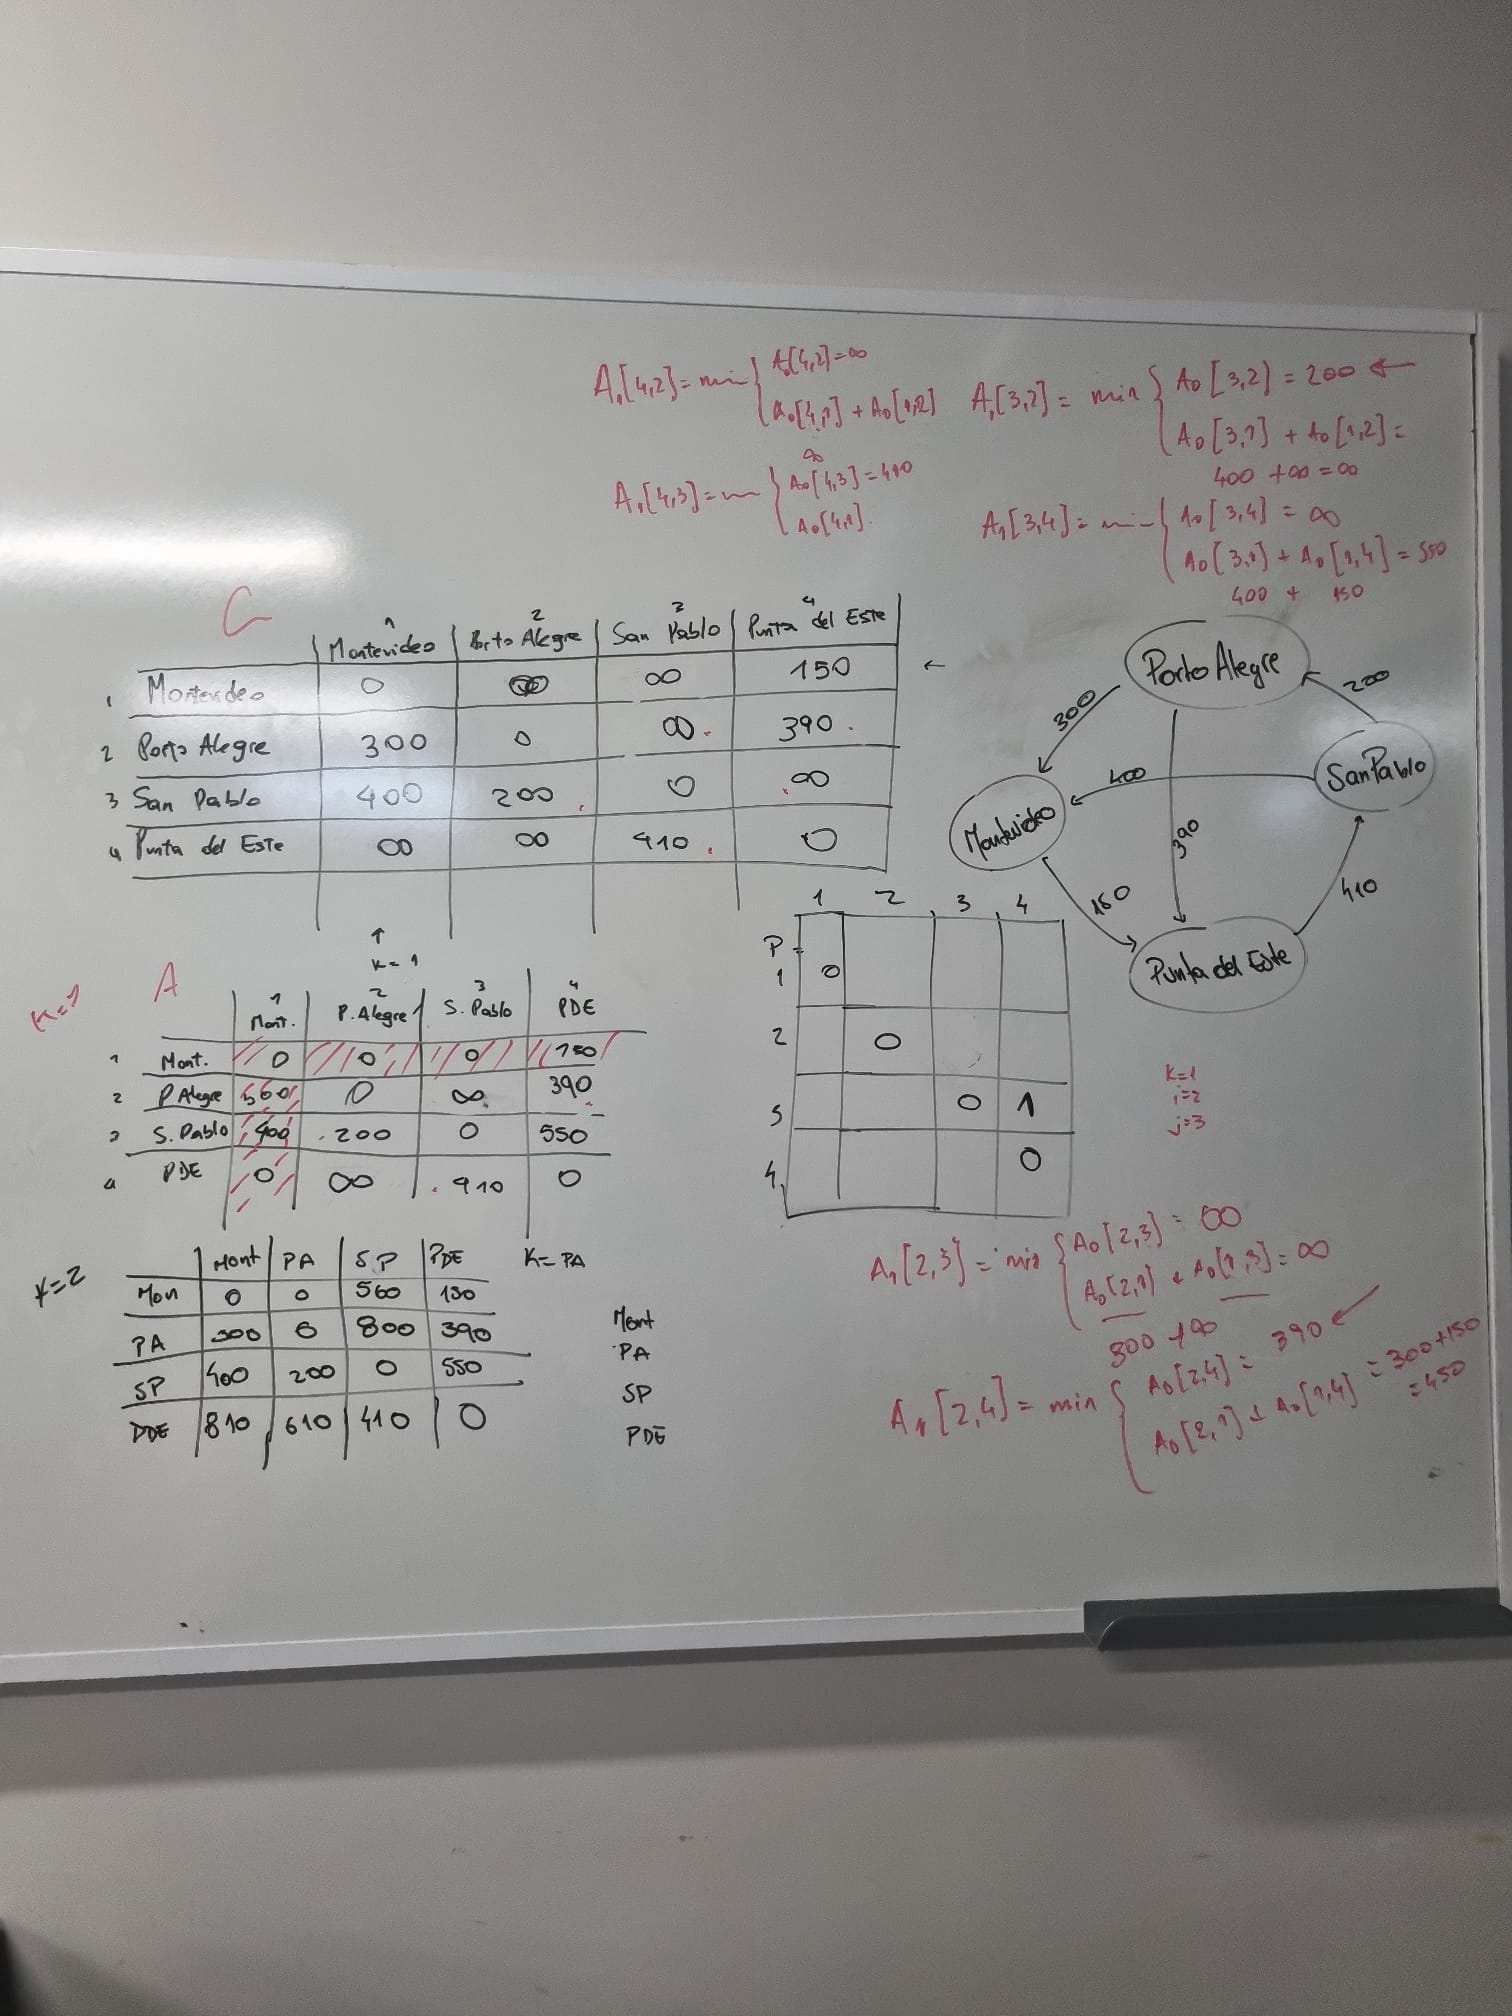 A₁[4,2] = min { A₀[4,2] = ∞
A₀[4,1] + A₀[1,2]
∞
A₁[3,2] = min { A₀[3,2] = 200 ←
A₀[3,1] + A₀[1,2] =
400 + ∞ = ∞
A₁[4,3] = m { A₀[4,3] = 410
A₀[4,1].
A₁[3,4] = mi { A₀[3,4] = ∞
A₀[3,1] + A₀[1,4] = 550
400 + 150
C
1 2 3 4
Montevideo Porto Alegre San Pablo Punta del Este
1 Montevideo 0 ∞ ∞ 150 ←
2 Porto Alegre 300 0 ∞. 390.
3 San Pablo 400 200. 0 .∞
4 Punta del Este ∞ ∞ 410. 0
↑
K=1
Porto Alegre
San Pablo
Montevideo
Punta del Este
300
200
400
390
150
410
K=1 A
1 2 3 4
Mont. P. Alegre S. Pablo PDE
1 Mont. 0 0 0 150
2 P Alegre 300 0 ∞ 390
3 S. Pablo 400 .200 0 550
4 PDE 0 ∞ .410 0
1 2 3 4
P
1 0
2 0
3 0 1
4 0
K=1
i=2
j=3
K=2
Mont PA SP PDE K=PA
Mon 0 0 560 150
PA 300 0 800 390
SP 400 200 0 550
PDE 810 610 410 0
Mont
PA
SP
PDE
A₁[2,3] = min { A₀[2,3] = ∞
A₀[2,1] + A₀[1,3] = ∞
300 + ∞
A₁[2,4] = min { A₀[2,4] = 390 ←
A₀[2,1] + A₀[1,4] = 300+150
=450